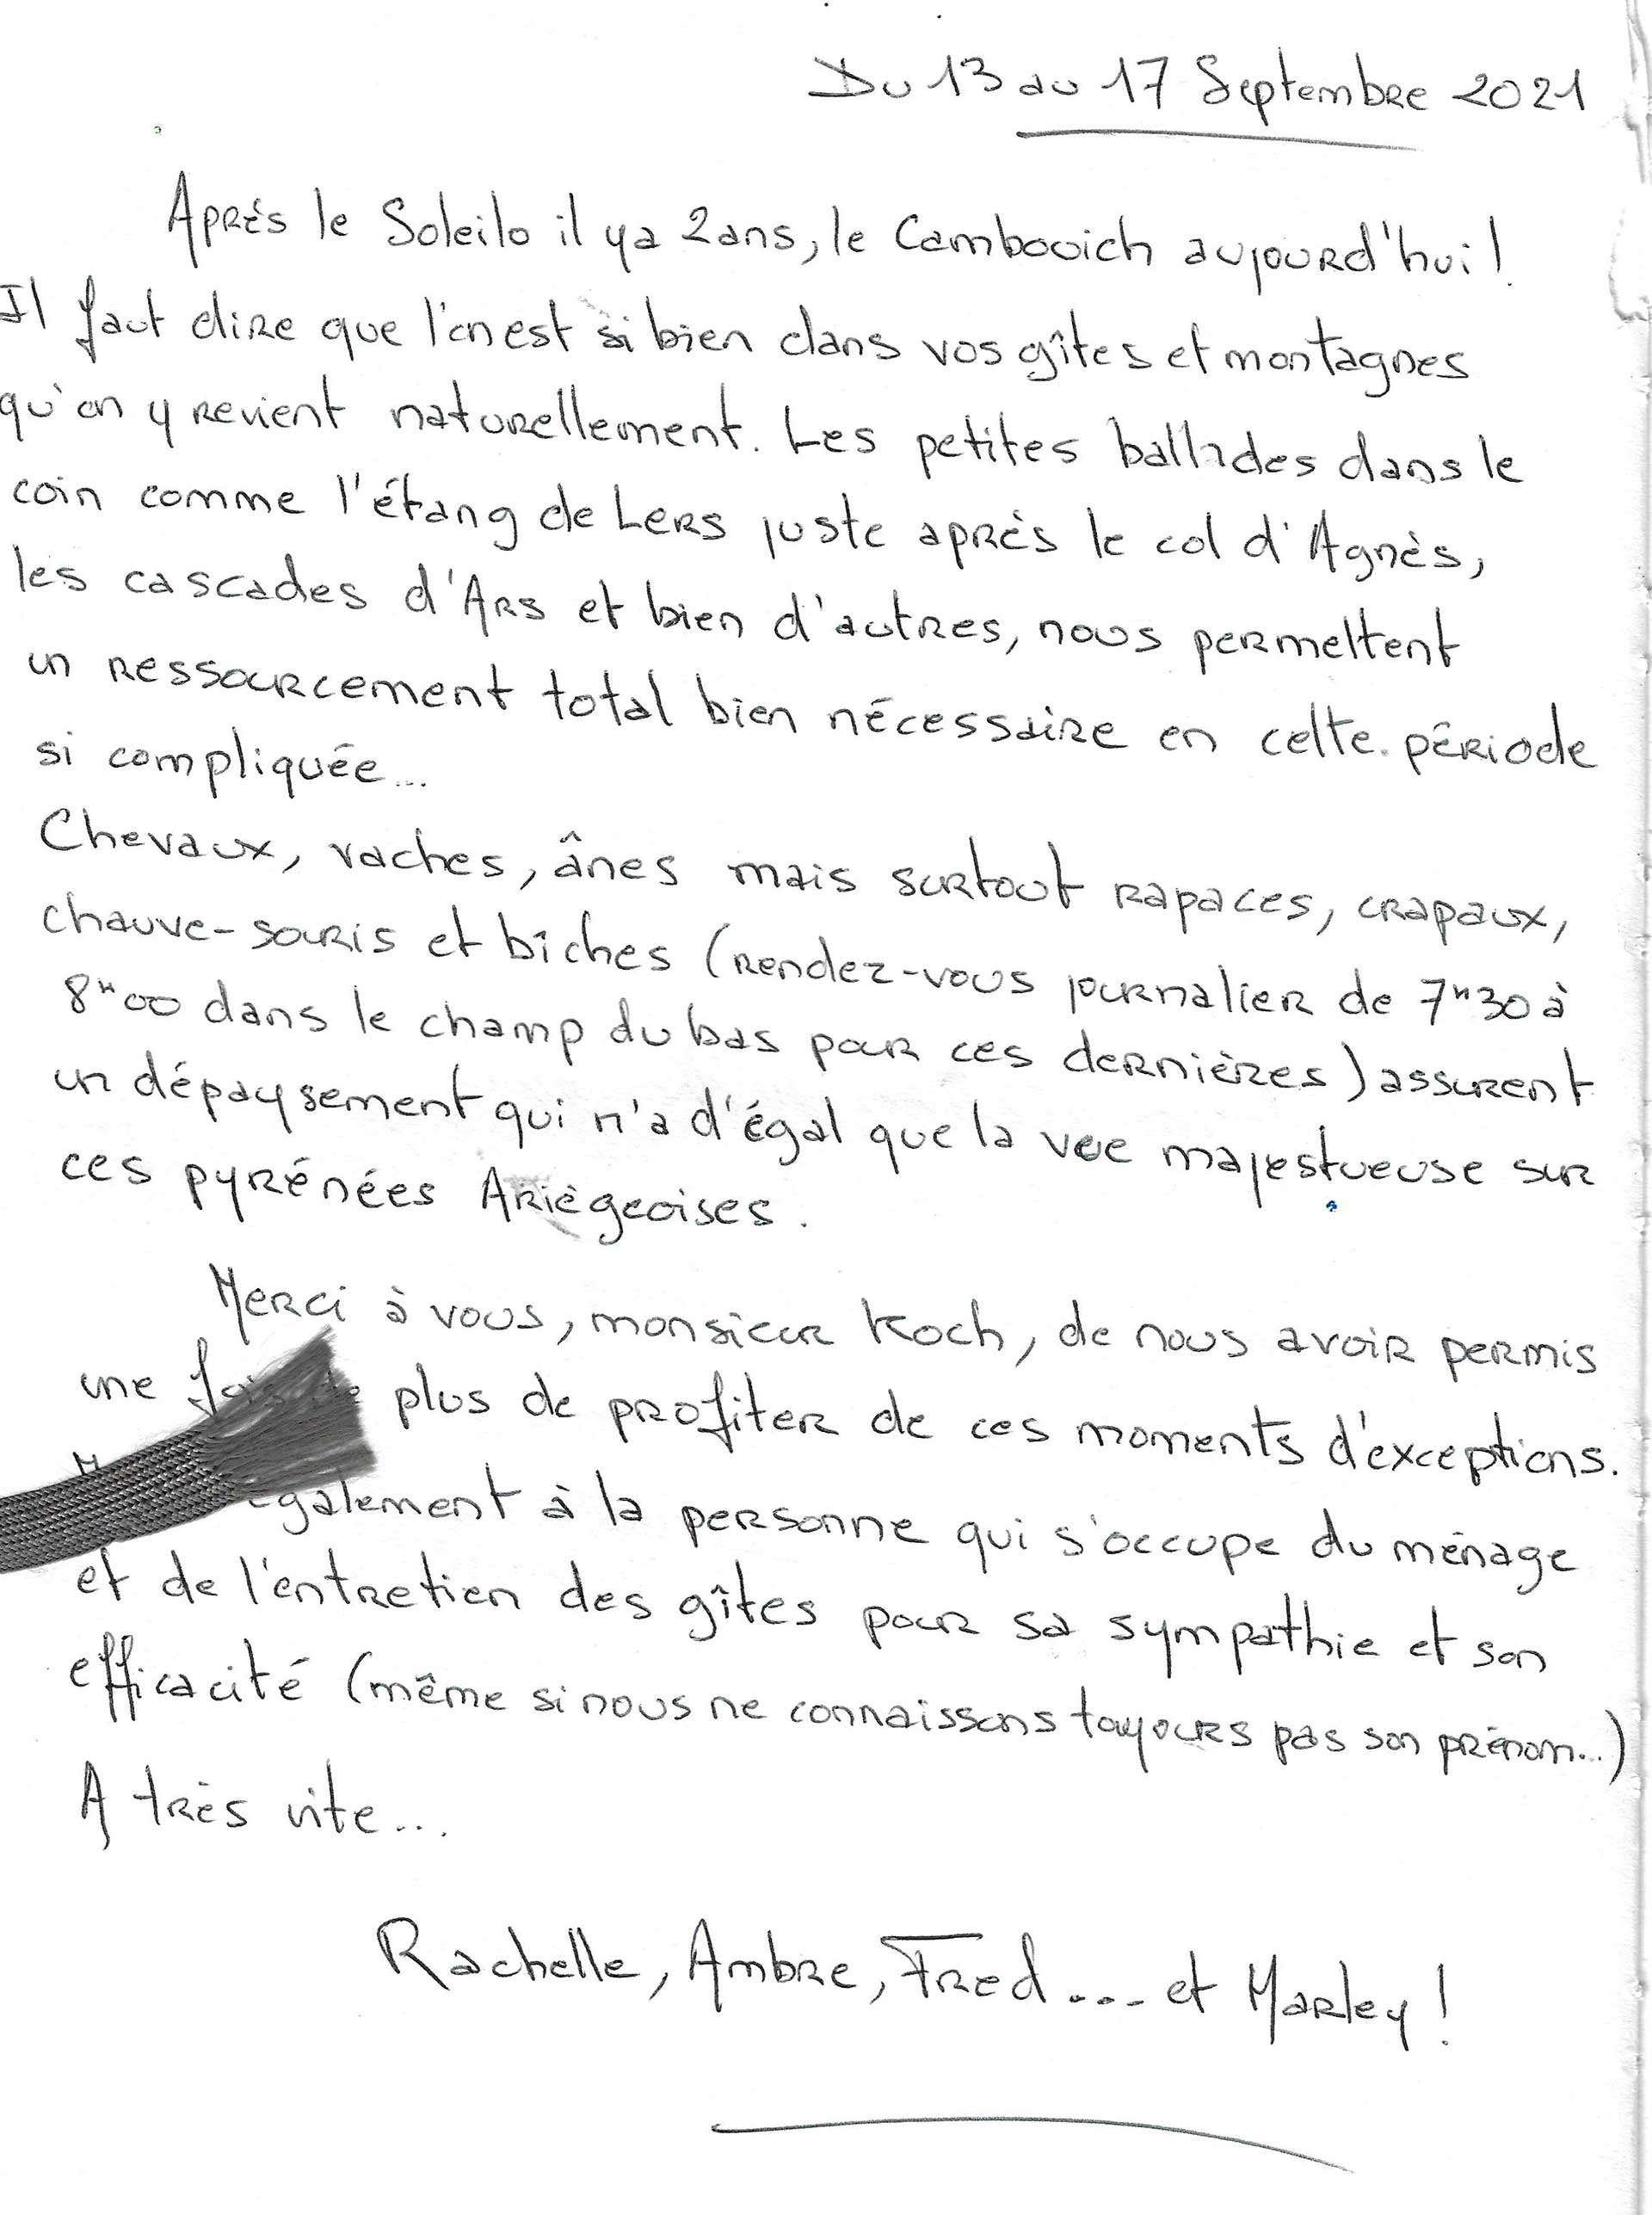 Du 13 au 17 Septembre 2021
Après le Soleilo il y a 2 ans, le Cambouich aujourd'hui!
Il faut dire que l'on est si bien dans vos gîtes et montagnes
qu'on y revient naturellement. Les petites ballades dans le
coin comme l'étang de Lers juste après le col d'Agnès,
les cascades d'Ars et bien d'autres, nous permettent
un ressourcement total bien nécessaire en cette période
si compliquée...
Chevaux, vaches, ânes mais surtout rapaces, crapaux,
chauve-souris et bîches (rendez-vous journalier de 7h30 à
8h00 dans le champ du bas pour ces dernières) assurent
un dépaysement qui n'a d'égal que la vue majestueuse sur
ces pyrénées Ariègeoises.
Merci à vous, monsieur Koch, de nous avoir permis
une fois de plus de profiter de ces moments d'exceptions.
également à la personne qui s'occupe du ménage
et de l'entretien des gîtes pour sa sympathie et son
efficacité (même si nous ne connaissons toujours pas son prénom...)
A très vite...
Rachelle, Ambre, Fred.... et Marley!